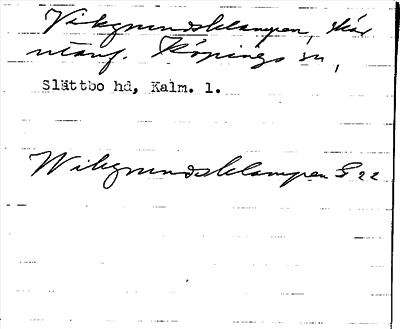 Vikgrundsklampen, skär
utanf. Köpings sn,
Slättbo hd, Kalm. l.
Wikgrundsklampen G 22